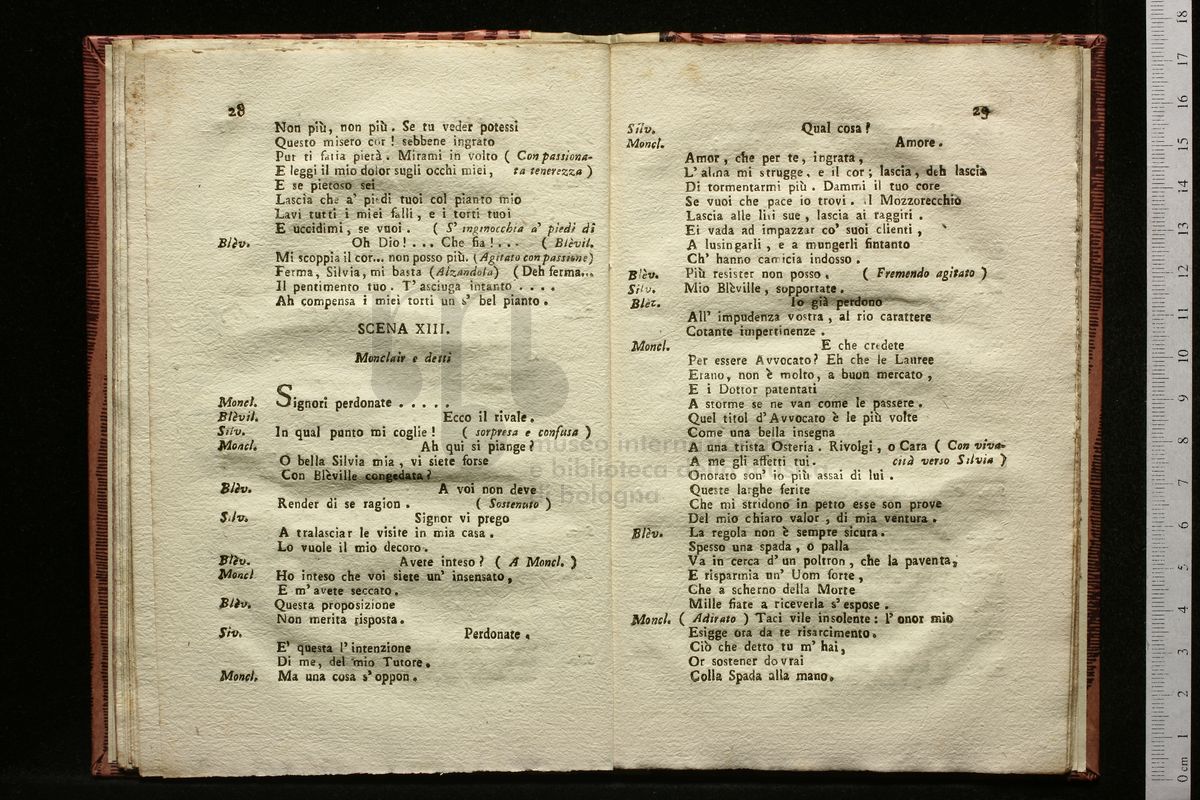 28
Non più, non più. Se tu veder potessi
Questo misero cor! sebbene ingrato
Pur ti faria pietà. Mirami in volto ( Con passiona-
E leggi il mio dolor sugli occhi miei, ta tenerezza )
E se pietoso sei
Lascia che a' piedi tuoi col pianto mio
Lavi tutti i miei falli, e i torti tuoi
E uccidimi, se vuoi. ( S' inginocchia a' piedi di
Blèv. Oh Dio! ... Che fia! ... ( Blévil.
Mi scoppia il cor... non posso più. (Agitato con passione)
Ferma, Silvia, mi basta (Alzandola) (Deh ferma...
Il pentimento tuo. T' asciuga intanto ....
Ah compensa i miei torti un s' bel pianto.
SCENA XIII.
Monclair e detti
Moncl. Signori perdonate .....
Blèvil. Ecco il rivale.
Silv. In qual punto mi coglie! ( sorpresa e confusa )
Moncl. Ah qui si piange?
O bella Silvia mia, vi siete forse
Con Blèville congedata?
Blèv. A voi non deve
Render di se ragion. ( Sostenuto )
Silv. Signor vi prego
A tralasciar le visite in mia casa.
Lo vuole il mio decoro.
Blèv. Avete inteso? ( A Moncl. )
Moncl Ho inteso che voi siete un' insensato,
E m' avete seccato.
Blèv. Questa proposizione
Non merita risposta.
Siv. Perdonate.
E' questa l' intenzione
Di me, del mio Tutore.
Moncl. Ma una cosa s' oppon.
29
Silv. Qual cosa?
Moncl. Amore.
Amor, che per te, ingrata,
L' alma mi strugge, e il cor; lascia, deh lascia
Di tormentarmi più. Dammi il tuo core
Se vuoi che pace io trovi. Il Mozzorecchio
Lascia alle liti sue, lascia ai raggiri.
Ei vada ad impazzar co' suoi clienti,
A lusingarli, e a mungerli fintanto
Ch' hanno camicia indosso.
Blèv. Più resister non posso. ( Fremendo agitato )
Silv. Mio Blèville, sopportate.
Blèv. Io già perdono
All' impudenza vostra, al rio carattere
Cotante impertinenze.
Moncl. E che credete
Per essere Avvocato? Eh che le Lauree
Erano, non è molto, a buon mercato,
E i Dottor patentati
A storme se ne van come le passere.
Quel titol d' Avvocato è le più volte
Come una bella insegna
A una trista Osteria. Rivolgi, o Cara ( Con viva-
A me gli affetti tui. cità verso Silvia )
Onorato son' io più assai di lui.
Queste larghe ferite
Che mi stridono in petto esse son prove
Del mio chiaro valor, di mia ventura.
Blèv. La regola non è sempre sicura.
Spesso una spada, o palla
Va in cerca d' un poltron, che la paventa,
E risparmia un' Uom forte,
Che a scherno della Morte
Mille fiate a riceverla s' espose.
Moncl. ( Adirato ) Taci vile insolente: l' onor mio
Esigge ora da te risarcimento.
Ciò che detto tu m' hai,
Or sostener dovrai
Colla Spada alla mano.
museo inter
e biblioteca d
di bologna
0 cm 1 2 3 4 5 6 7 8 9 10 11 12 13 14 15 16 17 18